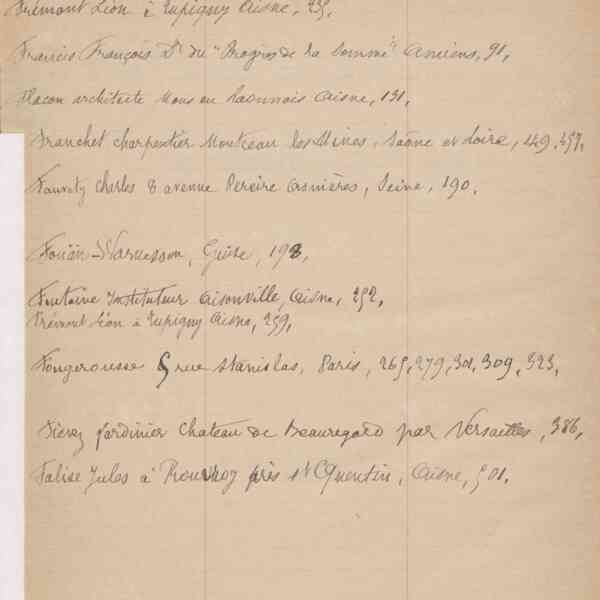 Frémont Léon à Lupigny Aisne, 259.
Francis François Dr du "Progrès de la Somme" Amiens, 91,
Flacon architecte Mons en Laonnois Aisne, 131,
Franchet charpentier Montceau les Mines, Saône et Loire, 149, 257,
Fauvety Charles 8 avenue Pereire Asnières, Seine, 190,
Fouän-Warnesson, Guise, 198,
Fontaine Instituteur Aisonville, Aisne, 252,
Frémont Léon à Lupigny Aisne, 259,
Fougerousse 5 rue Stanislas, Paris, 265, 279, 301, 309, 323,
jardinier Chateau de Beauregard par Versailles, 386,
Falise Jules à Rouvroy près St Quentin, Aisne, 501,